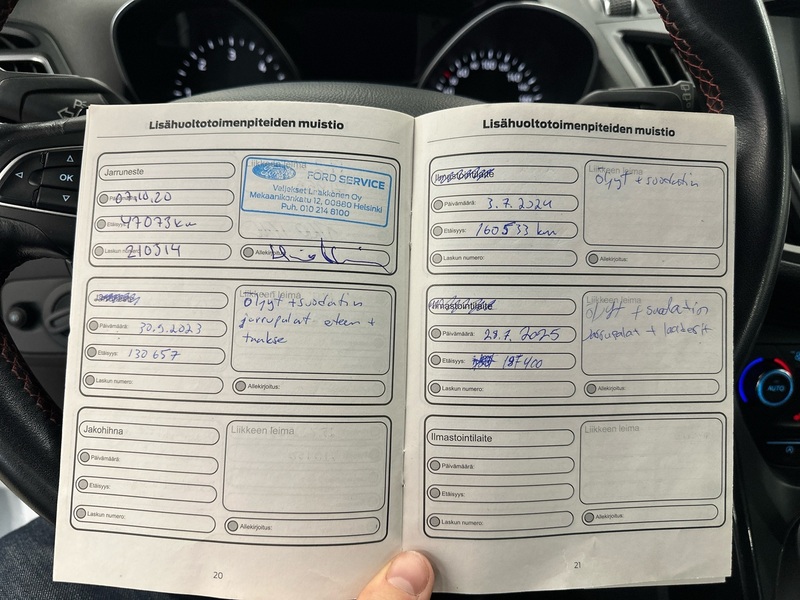 Lisähuoltotoimenpiteiden muistio
Jarruneste
Päivämäärä: 07.10.20
Etäisyys: 47073 km
Laskun numero: 210314
Liikkeen leima
Ford
FORD SERVICE
Veljekset Laakkonen Oy
Mekaanikonkatu 12, 00880 Helsinki
Puh. 010 214 8100
Allekirjoitus:
Päivämäärä: 30.9.2023
Etäisyys: 130 657
Laskun numero:
Liikkeen leima
Öljyt + suodatin
jarrupalat eteen +
taakse
Allekirjoitus:
Jakohihna
Päivämäärä:
Etäisyys:
Laskun numero:
Liikkeen leima
Allekirjoitus:
20
Lisähuoltotoimenpiteiden muistio
Ilmastointilaite
Päivämäärä: 3.7.2024
Etäisyys: 160533 km
Laskun numero:
Liikkeen leima
Öljyt + suodatin
Allekirjoitus:
Ilmastointilaite
Päivämäärä: 29.7.2025
Etäisyys: 187400
Laskun numero:
Liikkeen leima
Öljyt + suodatin
jarrupalat +
Allekirjoitus:
Ilmastointilaite
Päivämäärä:
Etäisyys:
Laskun numero:
Liikkeen leima
Allekirjoitus:
21
OK
AUTO